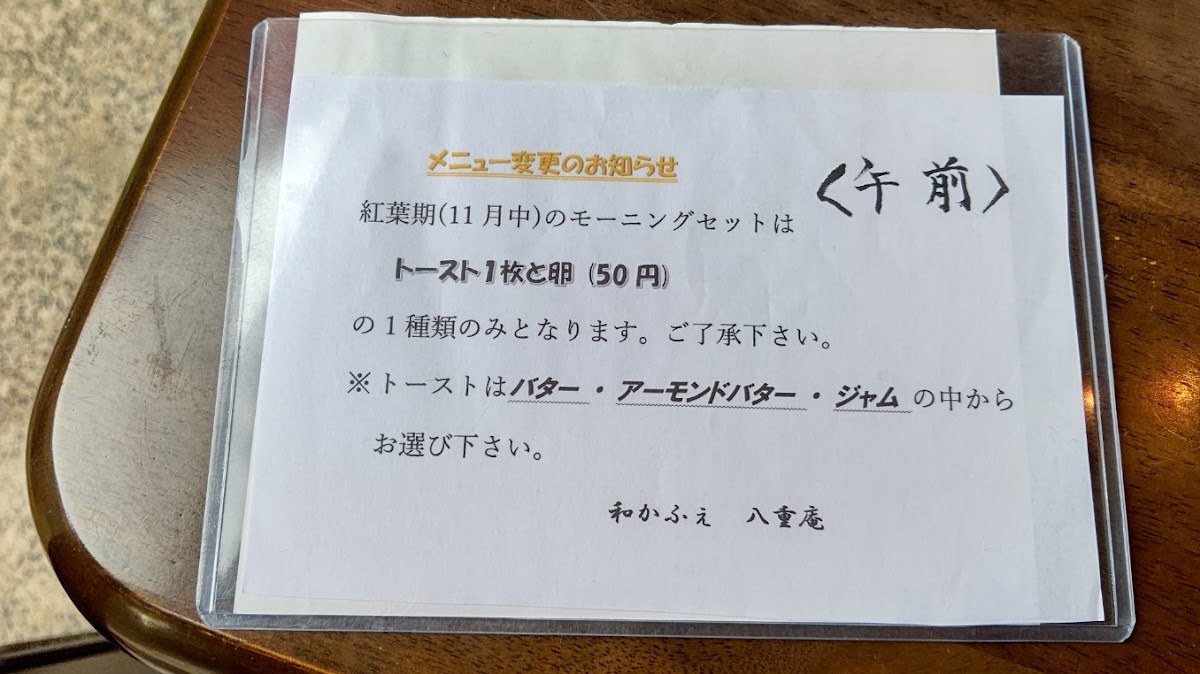 メニュー変更のお知らせ
〈午前〉
紅葉期(11月中)のモーニングセットは
トースト1枚と卵(50円)
の1種類のみとなります。ご了承下さい。
※トーストはバター・アーモンドバター・ジャムの中から
お選び下さい。
和かふぇ 八重庵